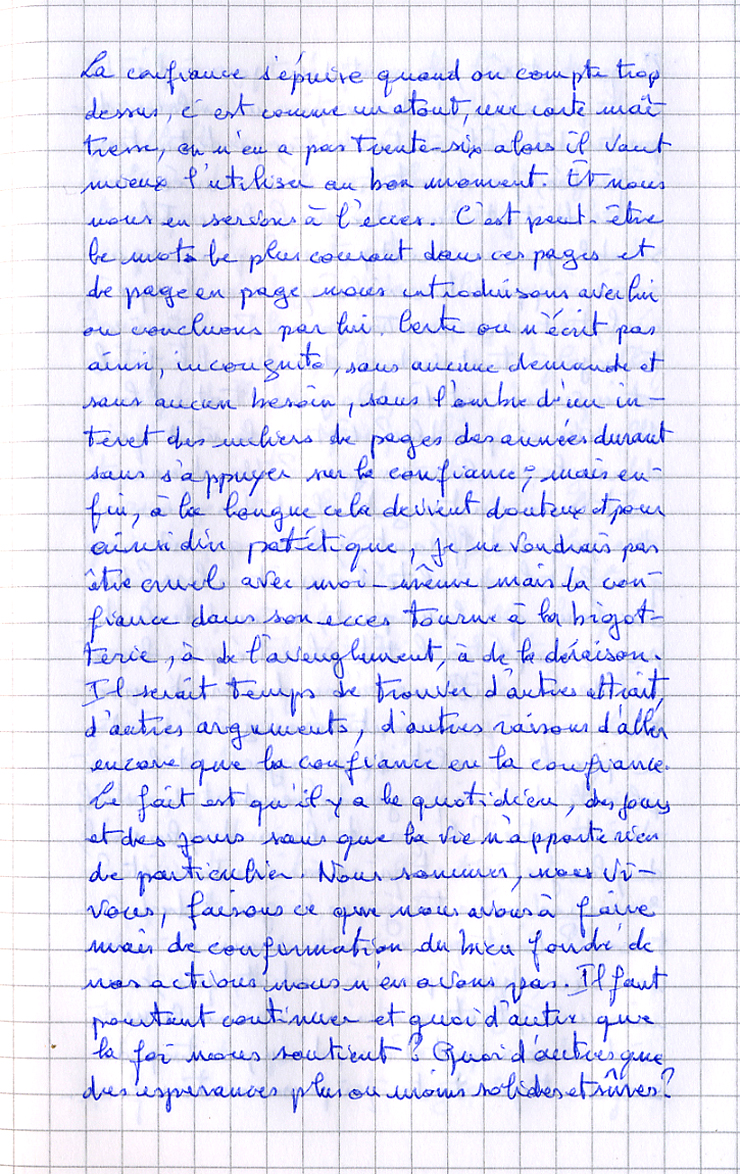 La confiance s'épuise quand on compte trop
dessus, c'est comme un atout, une carte maî
tresse, on n'en a pas trente-six alors il vaut
mieux l'utiliser au bon moment. Et nous
nous en servons à l'excès. C'est peut-être
le mots le plus courant dans ces pages et
de page en page nous introduisons avec lui
ou concluons par lui. Certe on n'écrit pas
ainsi, incognito, sans aucune demande et
sans aucun besoin, sans l'ombre d'un in-
téret des milliers de pages des années durant
sans s'appuyer sur la confiance ; mais en-
fin, à la longue cela devient douteux et pour
ainsi dire patétique, je ne voudrais pas
être cruel avec moi-même mais la con-
fiance dans son excès tourne à la bigot-
terie, à de l'aveuglement, à de la déraison.
Il serait temps de trouver d'autres attrait,
d'autres arguments, d'autres raisons d'aller
encore que la confiance en la confiance.
Le fait est qu'il y a le quotidien, des jours
et des jours sans que la vie n'apporte rien
de particulier. Nous sommes, nous vi-
vons, faisons ce que nous avons à faire
mais de confirmation du bien fondé de
nos actions nous n'en avons pas. Il faut
pourtant continuer et quoi d'autre que
la foi nous soutient ? Quoi d'autres que
des esperances plus ou moins solides et sûres ?